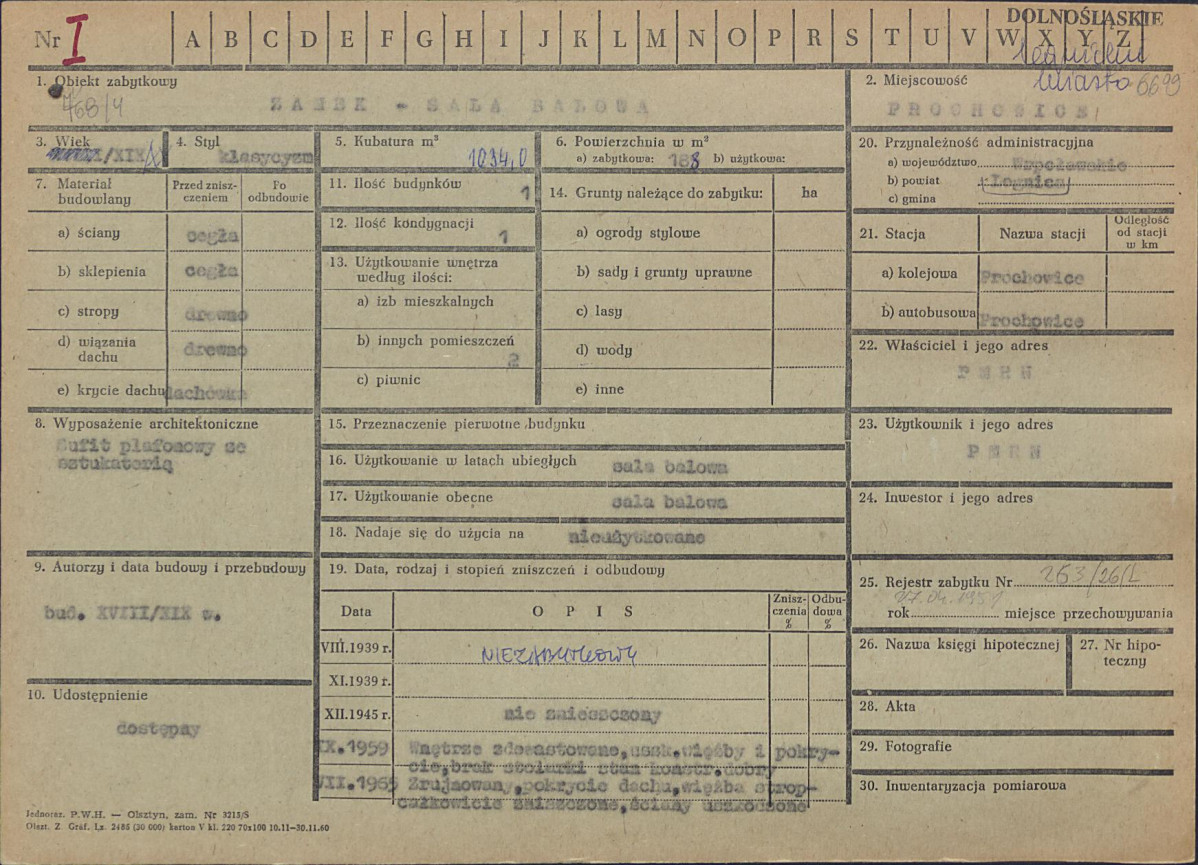 DOLNOŚLĄSKIE
Nr I A B C D E F G H I J K L M N O P R S T U V W X Y Z
1. Obiekt zabytkowy
768/4
ZAMEK - SALA BALOWA
2. Miejscowość
miasto 6699
PROCHOWICE
3. Wiek
/XIX
4. Styl
klasycyzm
5. Kubatura m³
1034,0
6. Powierzchnia w m²
a) zabytkowa: 188 b) użytkowa:
20. Przynależność administracyjna
a) województwo Wrocławskie
b) powiat Legnica
c) gmina
7. Materiał budowlany
Przed zniszczeniem
Po odbudowie
a) ściany cegła
b) sklepienia cegła
c) stropy drewno
d) wiązania dachu drewno
e) krycie dachu dachówka
11. Ilość budynków 1
12. Ilość kondygnacji 1
13. Użytkowanie wnętrza według ilości:
a) izb mieszkalnych
b) innych pomieszczeń 2
c) piwnic
14. Grunty należące do zabytku: ha
a) ogrody stylowe
b) sady i grunty uprawne
c) lasy
d) wody
e) inne
21. Stacja
Nazwa stacji
Odległość od stacji w km
a) kolejowa Prochowice
b) autobusowa Prochowice
22. Właściciel i jego adres
PMRN
8. Wyposażenie architektoniczne
Sufit plafonowy ze
sztukaterią
15. Przeznaczenie pierwotne budynku
16. Użytkowanie w latach ubiegłych sala balowa
17. Użytkowanie obecne sala balowa
18. Nadaje się do użycia na nieużytkowane
23. Użytkownik i jego adres
PMRN
24. Inwestor i jego adres
9. Autorzy i data budowy i przebudowy
bud. XVIII/XIX w.
10. Udostępnienie
dostępny
19. Data, rodzaj i stopień zniszczeń i odbudowy
Data
OPIS
Zniszczenia %
Odbudowa %
VIII.1939 r. NIEZABYTKOWY
XI.1939 r.
XII.1945 r. nie zniszczony
IX.1959 Wnętrze zdewastowane, uszk. więźby i pokry-
cie, brak stolarki stan konstr. dobry
Zrujnowany, pokrycie dachu, więźba strop-
całkowicie zniszczone, ściany uszkodzone
25. Rejestr zabytku Nr 253/26/L
rok miejsce przechowywania
26. Nazwa księgi hipotecznej
27. Nr hipoteczny
28. Akta
29. Fotografie
30. Inwentaryzacja pomiarowa
Jednoraz. P.W.H. — Olsztyn, zam. Nr 3213/S
Olszt. Z. Graf. Lz. 2485 (20 000) karton V kl. 220 70x100 10.11—30.11.60